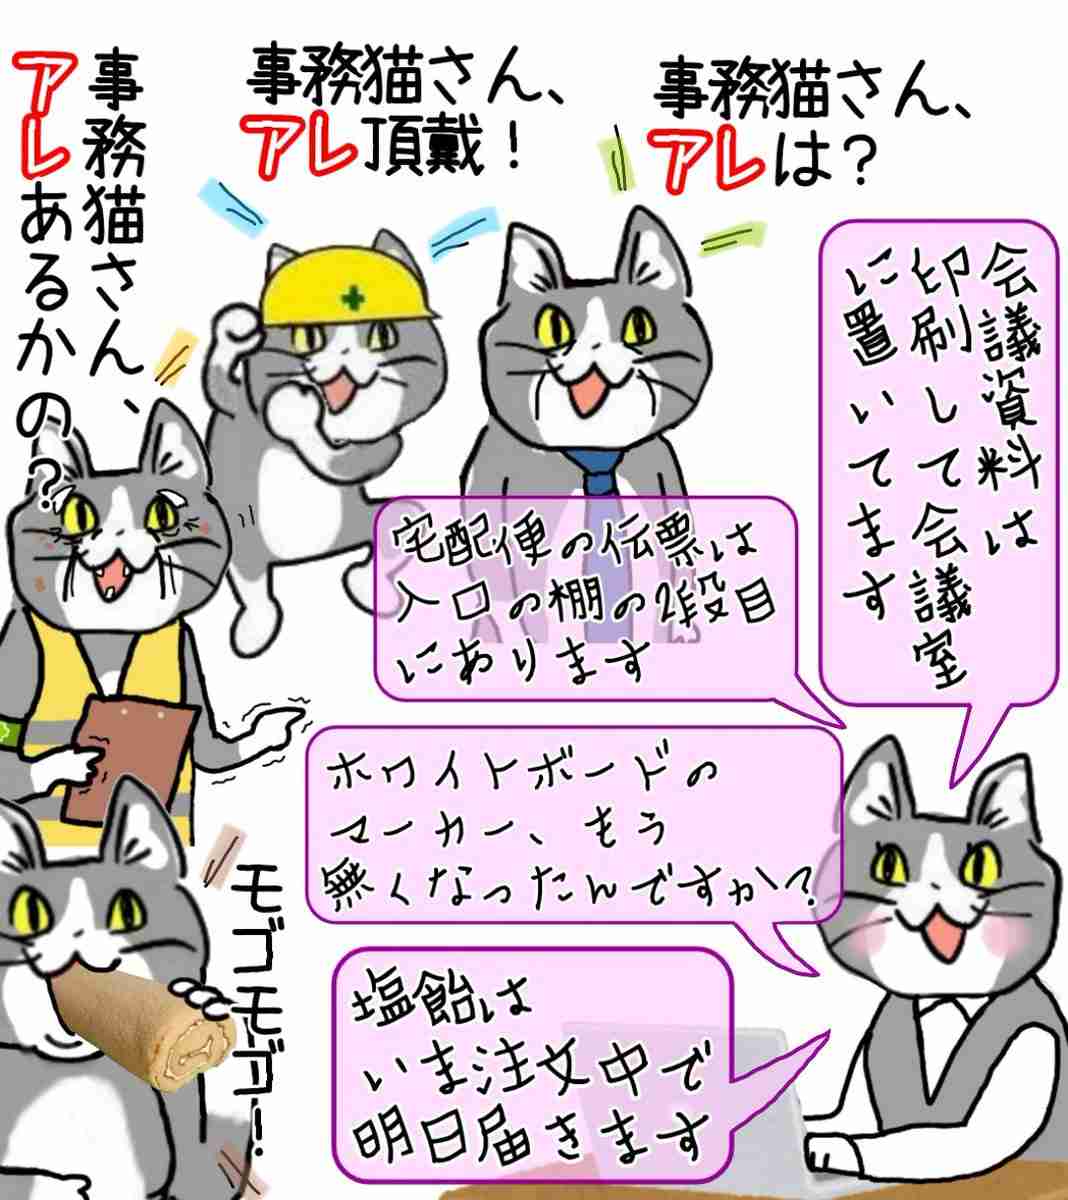 事務猫さん、
アレは？
事務猫さん、
アレ頂戴！
事務猫さん、
アレあるかの？
会議資料は
印刷して会議室
に置いてます
宅配便の伝票は
入口の棚の2段目
にあります
ホワイトボードの
マーカー、もう
無くなったんですか？
モゴモゴ！
塩飴は
いま注文中で
明日届きます